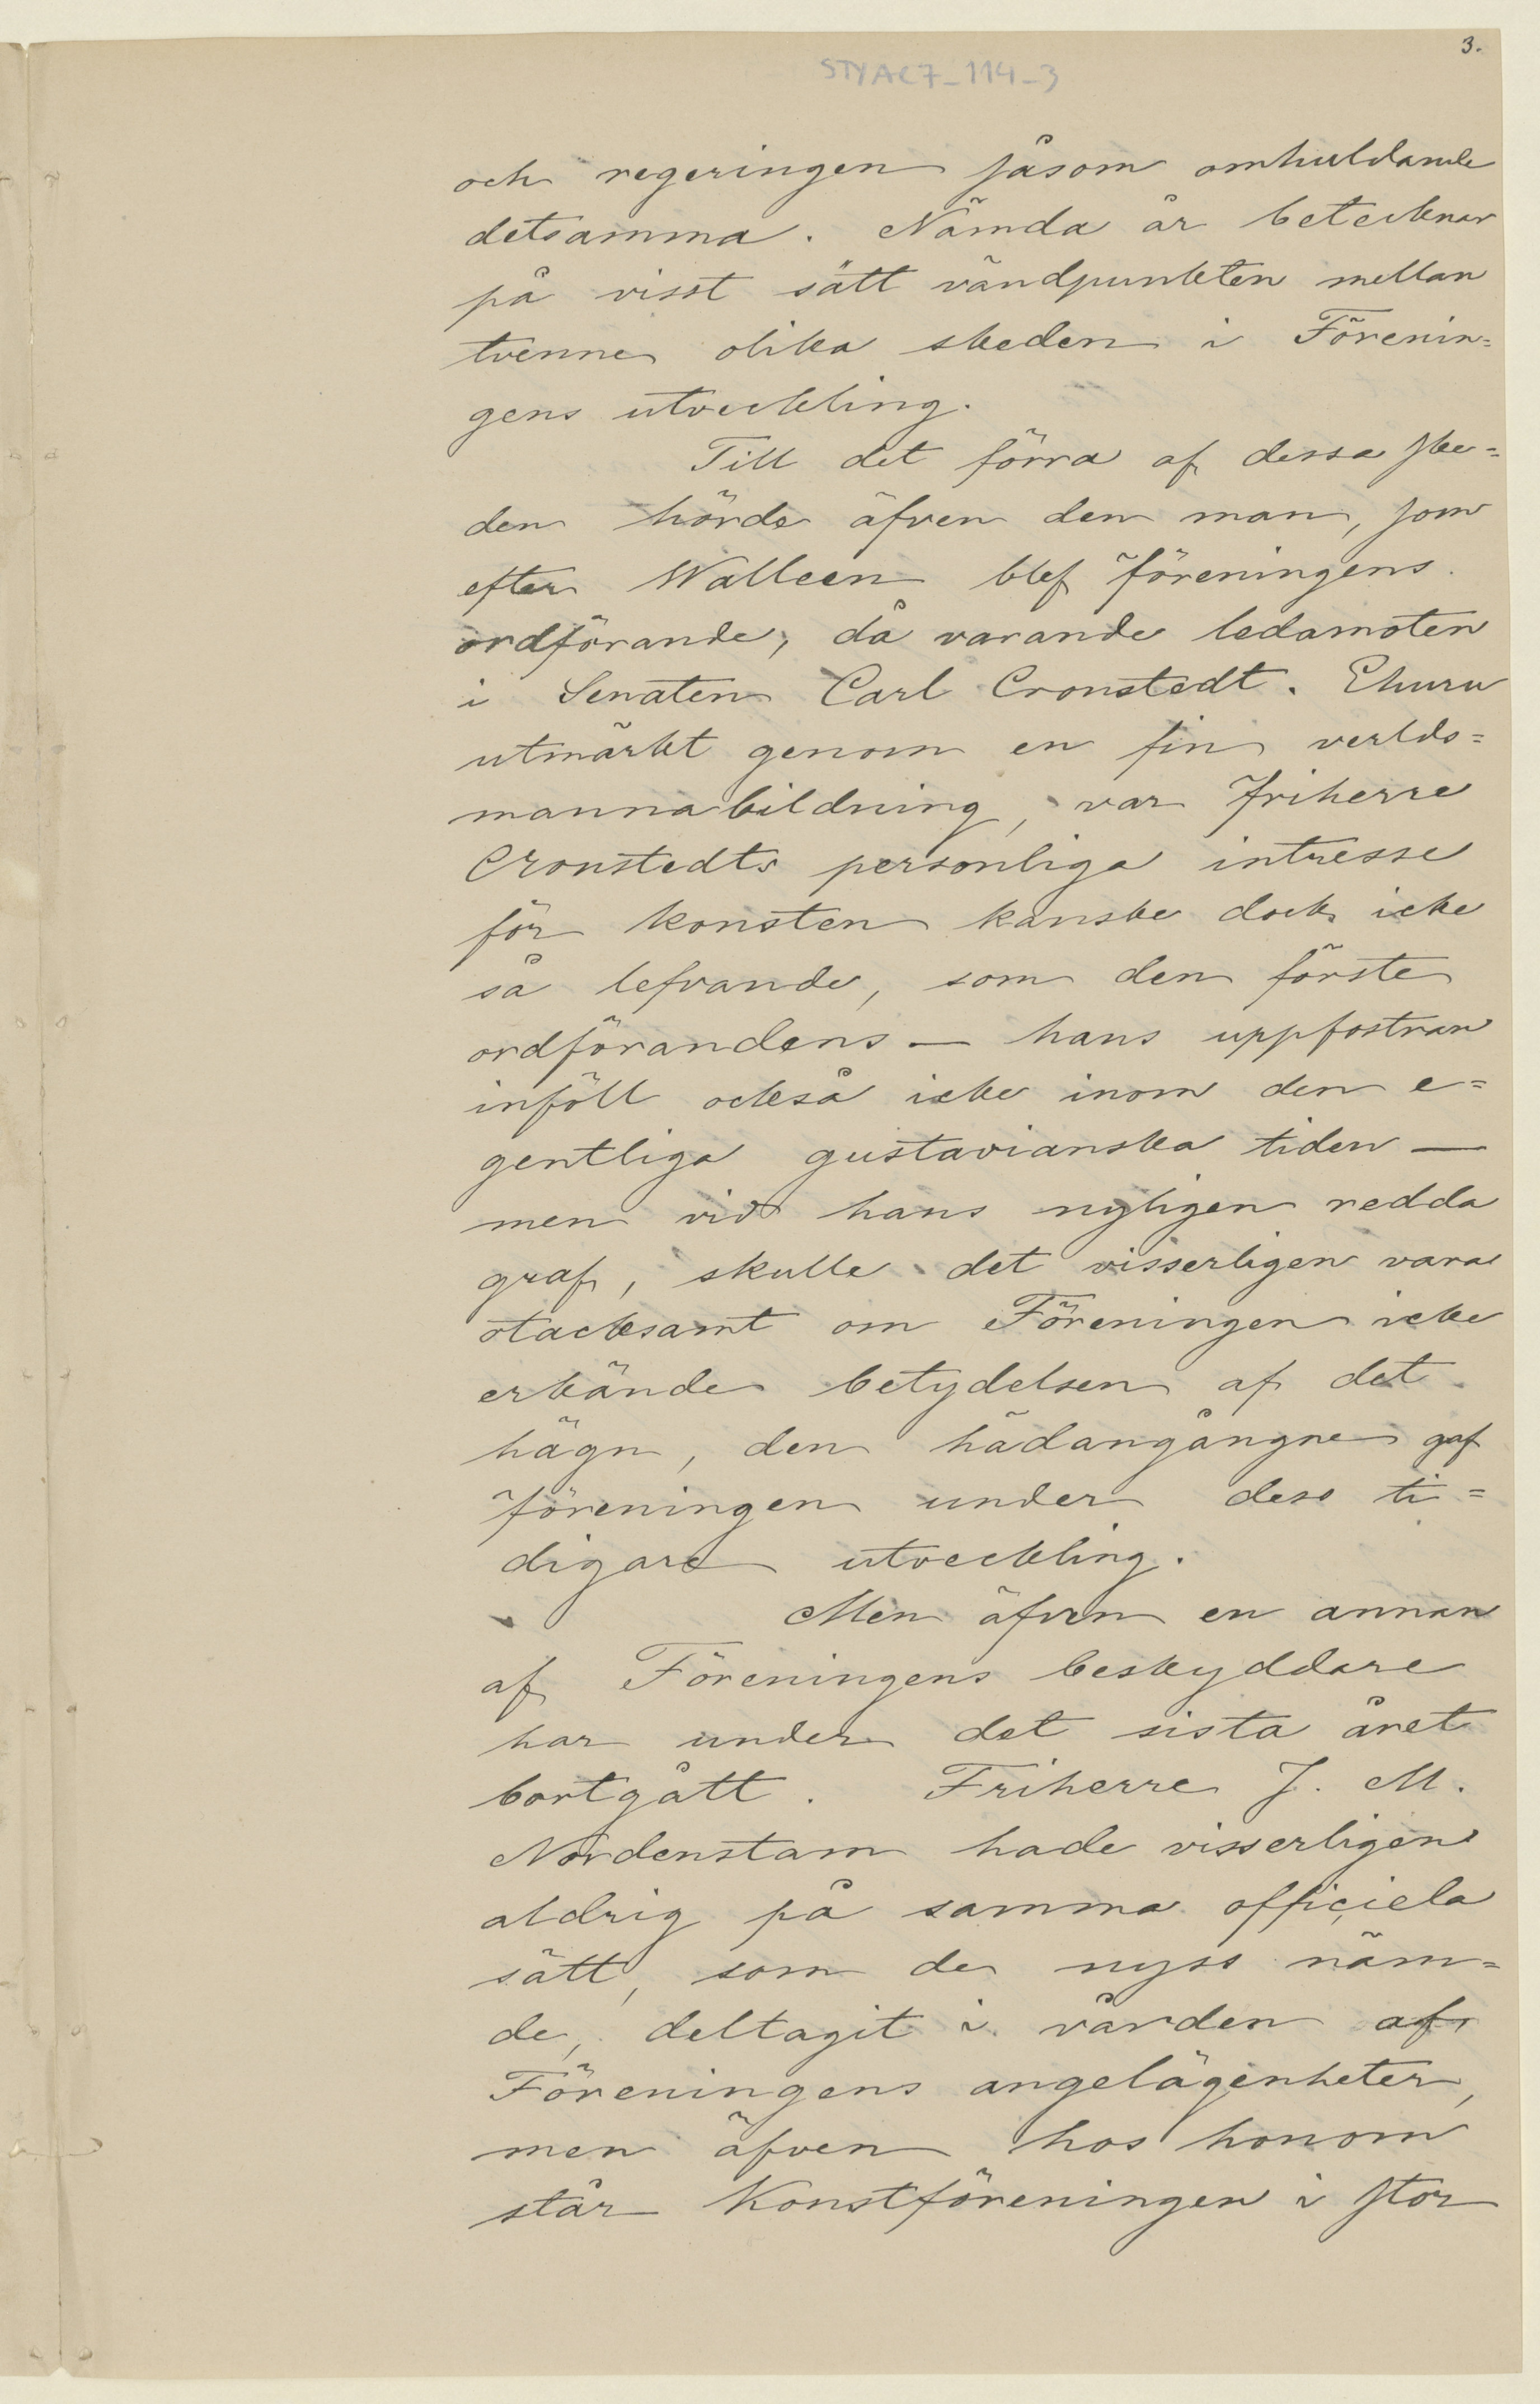 3.
STYAC7_114_3
och regeringen såsom omhuldande
detsamma. Nämda år betecknar
på visst sätt vändpunkten mellan
tvenne olika skeden i Förenin=
gens utveckling.
Till det förra af dessa ske=
den hörde äfven den man, som
efter Walleen blef föreningens
ordförande, då varande ledamoten
i Senaten Carl Cronstedt. Ehuru
utmärkt genom en fin verlds=
mannabildning, var Friherre
Cronstedts personliga intresse
för konsten kanske dock icke
så lefvande, som den förste
ordförandens — hans uppfostran
inföll också icke inom den e=
gentliga gustavianska tiden —
men vid hans nyligen redda
graf, skulle det visserligen vara
otacksamt om Föreningen icke
erkände betydelsen af det
hägn, den hädangångne gaf
föreningen under dess ti=
digare utveckling.
Men äfven en annan
af Föreningens beskyddare
har under det sista året
bortgått. Friherre J. M.
Nordenstam hade visserligen
aldrig på samma officiela
sätt, som de nyss näm=
de, deltagit i vården af
Föreningens angelägenheter,
men äfven hos honom
står Konstföreningen i stor